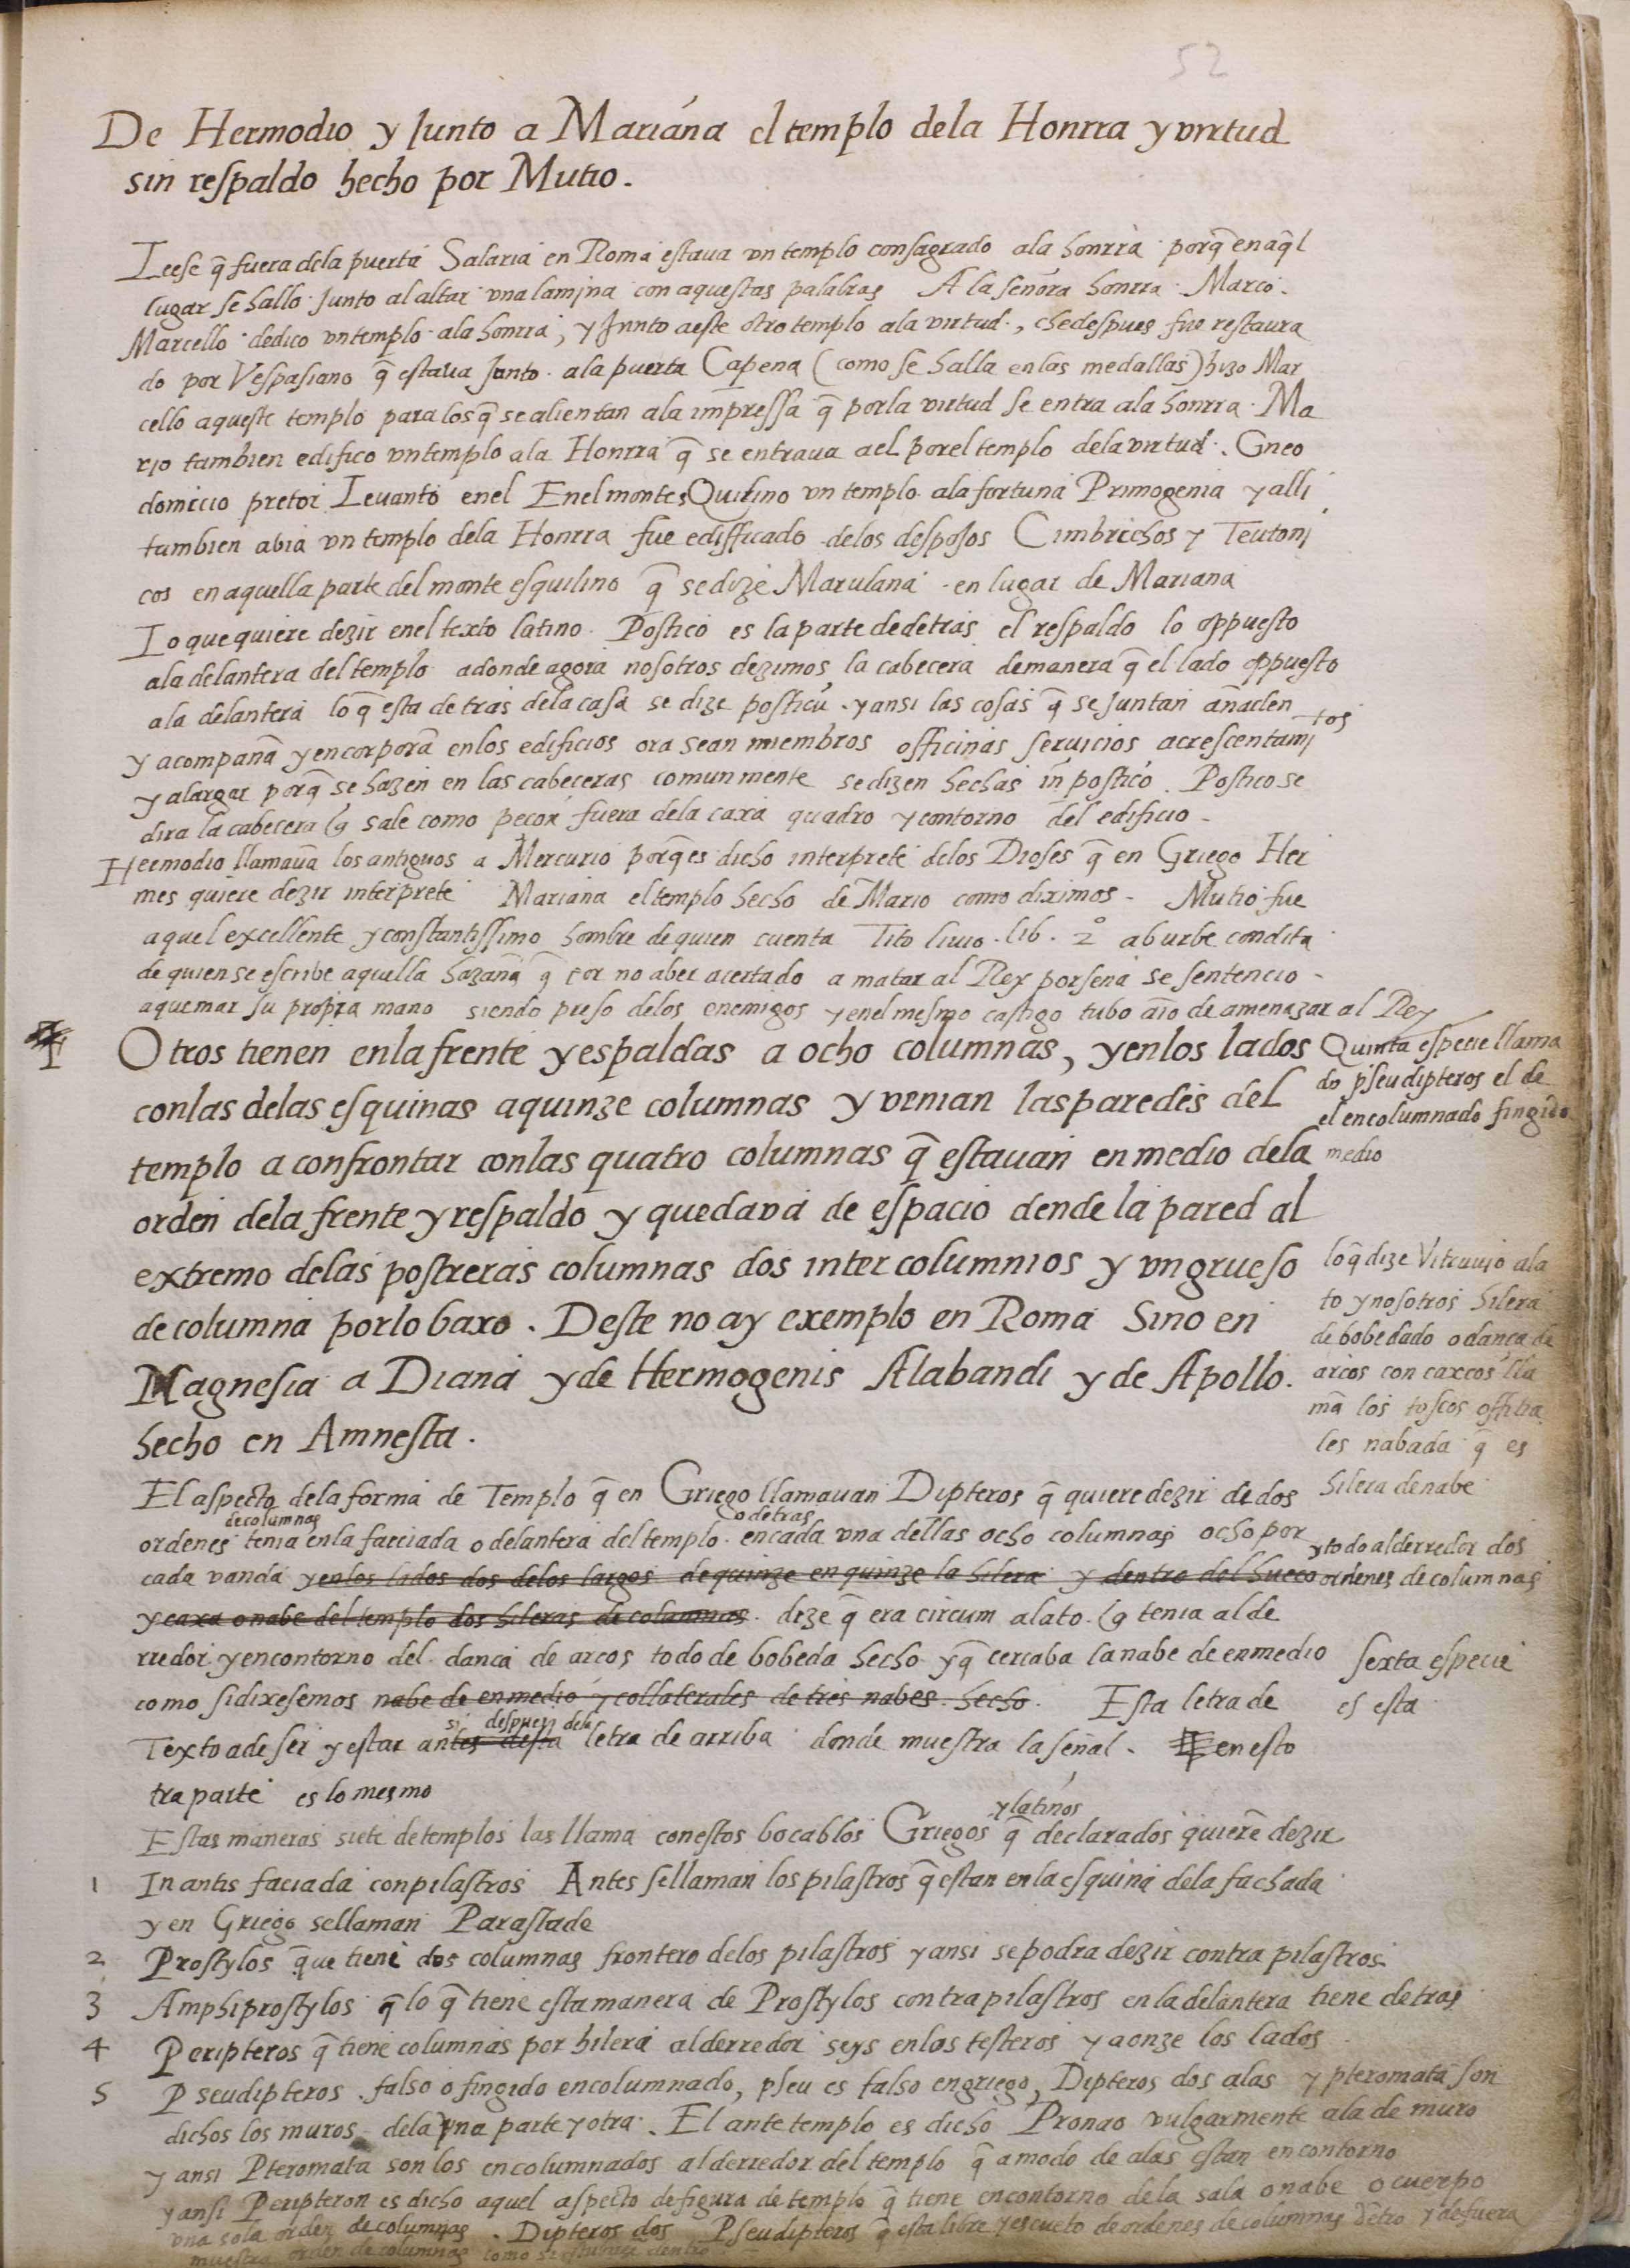 52
De Hermodio y Junto a Mariána el templo dela Honrra y virtud
sin respaldo hecho por Mutio.
Leese q̃ fuera dela puerta Salaria en Roma estaua vn templo consagrado ala honrra porq̃ en aq̃l
lugar se hallo Junto al altar vna lamina con aquestas palabras A la señora honrra Marco.
Marcello dedico vn templo ala honrra, y Junto aeste otro templo ala virtud., che despues fue restaura
do por Vespasiano q̃ estaua Junto ala puerta Capena (como se halla en las medallas) hizo Mar
cello aqueste templo para los q̃ se alientan ala impressa q̃ por la virtud se entra ala honrra. Ma
rio tambien edifico vn templo ala Honrra q̃ se entraua ael por el templo dela virtud. Gneo
domicio pretor Leuanto enel Enel monte Quirino vn templo ala fortuna Primogenia y alli
tambien abia vn templo dela Honrra fue edifficado delos despojos Cimbrichos y Teutoni
cos en aquella parte del monte esquilino q̃ se dize Marulana en lugar de Mariana
Lo que quiere dezir enel texto latino. Postico es la parte dedetras el respaldo lo oppuesto
ala delantera del templo adonde agora nosotros dezimos la cabecera demanera q̃ el lado oppuesto
ala delantera lo q̃ esta detras dela casa se dize posticũ. y ansi las cosas q̃ se juntan añaden
y acompañã y encorporã enlos edificios ora sean miembros officinas seruicios acrescentami tos
y alargar porq̃ se hazen en las cabeceras comunmente se dizen hechas in postico. Postico se
dira la cabecera q̃ sale como pecon fuera dela caxa quadro y contorno del edificio.
Hermodio llamauã los antiguos a Mercurio porq̃ es dicho interprete delos Dioses q̃ en Griego Her
mes quiere dezir interprete Mariana el templo hecho de Mario como diximos. Mutio fue
aquel excellente y constantissimo hombre de quien cuenta Tito liuio. lib. 2º ab urbe condita
de quien se escribe aquella hazaña q̃ por no aber acertado a matar al Rey porsena se sentencio
aquemar su propia mano siendo preso delos enemigos y enel mesmo castigo tubo aĩo de amenazar al Rey
Otros tienen enla frente y espaldas a ocho columnas, y enlos lados
conlas delas esquinas aquinze columnas y venian las paredes del
templo a confrontar conlas quatro columnas q̃ estauan en medio dela
orden dela frente y respaldo y quedava de espacio dende la pared al
extremo delas postreras columnas dos intercolumnios y vn grueso
de columna por lo baxo. Deste no ay exemplo en Roma Sino en
Magnesia a Diana y de Hermogenis Alabandi y de Apollo.
hecho en Amnesta.
Quinta especie llama
do pseudipteros el de
el encolumnado fingido
medio
lo q̃ dize Vitruuio ala
to y nosotros hilera
de bobedado o danca de
arcos con caxcos lla
mã los toscos offitia
les nabada q̃ es
hilera de nabe
El aspecto dela forma de Templo q̃ en Griego llamauan Dipteros q̃ quiere dezir de dos
ordenes de columnas tenia enla facciada o delantera del templo o detras en cada vna dellas ocho columnas ocho por
cada vanda y enlos lados dos delos largos de quinze en quinze la hilera y dentro del hueco
y todo alderredor dos
ordenes de columnas
y caxa o nabe del templo dos hileras de columnas. dize q̃ era circum alato. q̃ tenia alde
rredor. y encontorno del danca de arcos todo de bobeda hecho y q̃ cercaba la nabe de en medio
como si dixesemos nabe de en medio y collaterales de tres nabes. hecho. Esta letra de
Texto a de ser y estar antes desta si despues dela letra de arriba donde muestra la señal. en esto
tra parte es lo mesmo
sexta especie
es esta
Estas maneras siete de templos las llama con estos bocablos Griegos y latinos q̃ declarados quierẽ dezir
1 In antis faciada con pilastros Antes sellaman los pilastros q̃ estan en la esquina dela fachada
y en Griego sellaman Parastade
2 Prostylos que tiene dos columnas frontero delos pilastros y ansi se podra dezir contra pilastros
3 Amphiprostylos q̃ lo q̃ tiene esta manera de Prostylos contra pilastros en la delantera tiene detras
4 Peripteros q̃ tiene columnas por hilera alderredor seys enlos testeros y a onze los lados
5 Pseudipteros. falso o fingido encolumnado, pseu es falso en griego, Dipteros dos alas y pteromata son
dichos los muros dela vna parte y otra. El ante templo es dicho Pronao vulgarmente ala de muro
y ansi Pteromata son los encolumnados alderredor del templo q̃ a modo de alas estan en contorno
y ansi Peripteron es dicho aquel aspecto de figura de templo q̃ tiene en contorno de la sala o nabe o cuerpo
vna sola orden de columnas. Dipteros dos Pseudipteros q̃ esta libre y escueto de ordenes de columnas dẽtro y de fuera
muestra orden de columnas como si estubiese dentro